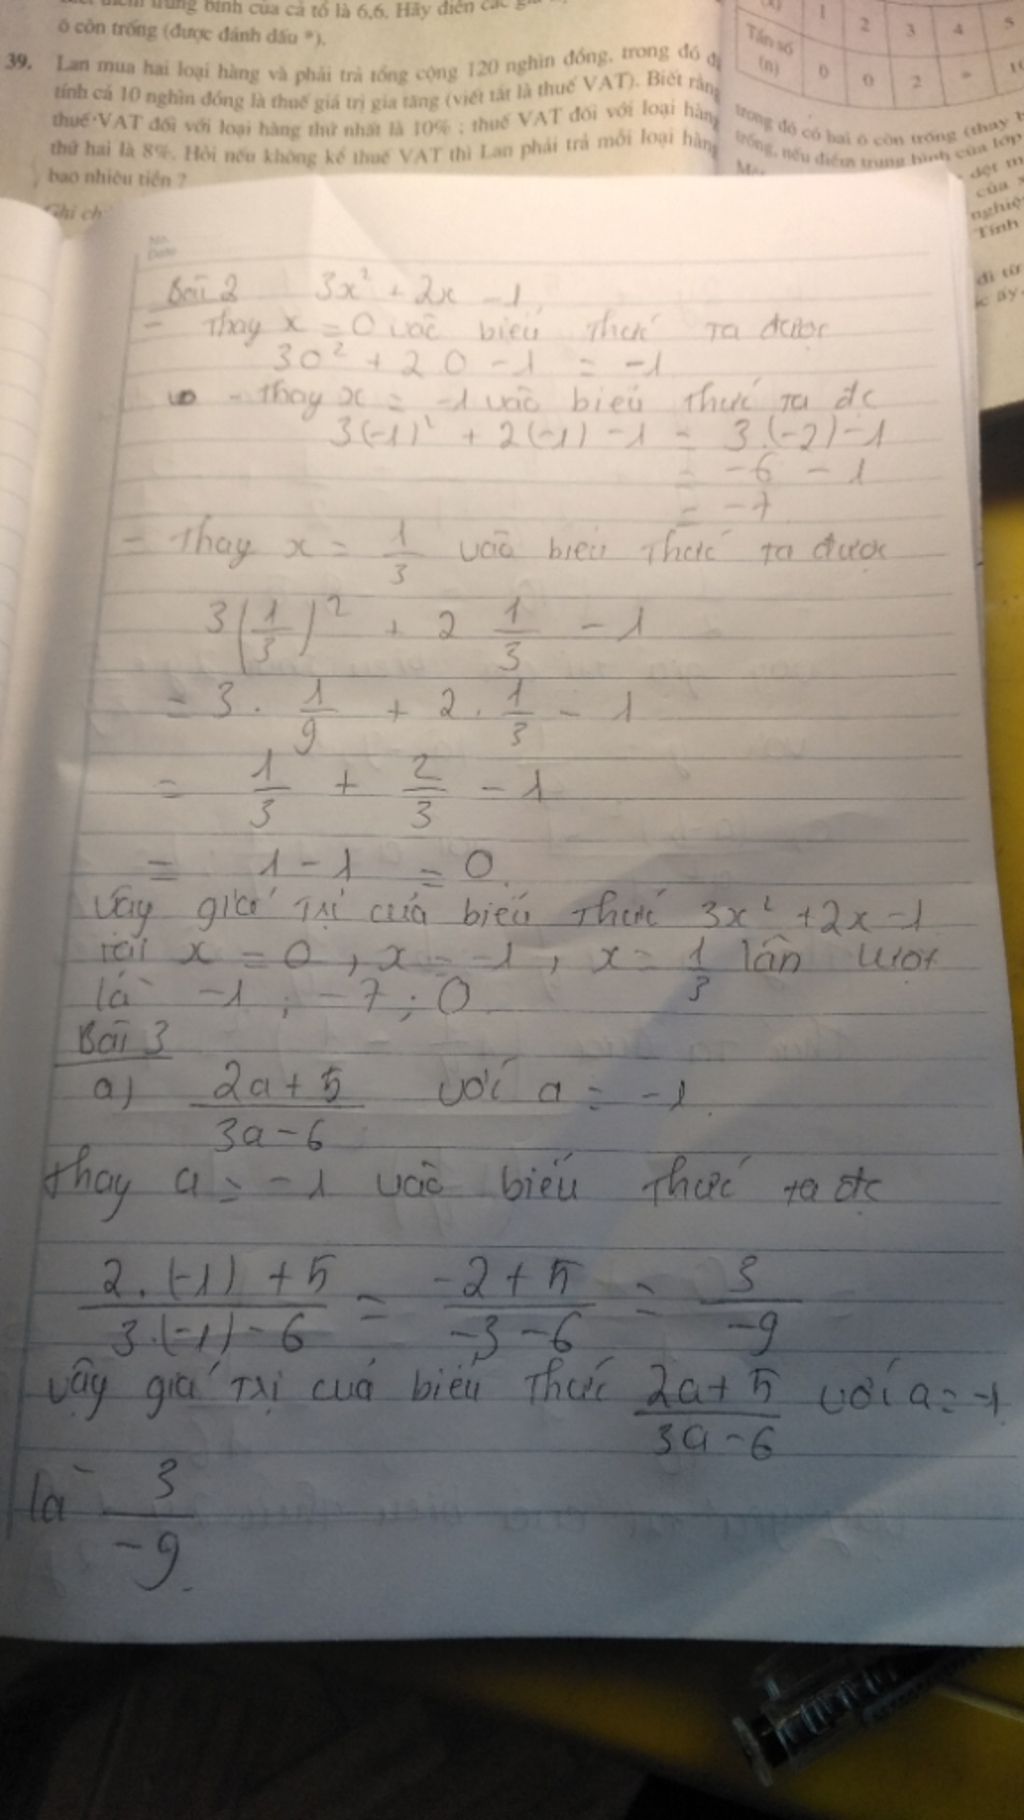 trung bình của cả tổ là 6,6. Hãy điền các
ô còn trống (được đánh dấu *).
39. Lan mua hai loại hàng và phải trả tổng cộng 120 nghìn đồng, trong đó đ
tính cả 10 nghìn đồng là thuế giá trị gia tăng (viết tắt là thuế VAT). Biết rằng
thuế VAT đối với loại hàng thứ nhất là 10% ; thuế VAT đối với loại hàng
thứ hai là 8%. Hỏi nếu không kể thuế VAT thì Lan phải trả mỗi loại hàng
bao nhiêu tiền ?
Ghi ch
(x) 1 2 3 4 5
Tần số (n) 0 0 2 * 10
trong đó có hai ô còn trống (thay b
trống, nếu điểm trung bình của lớp
dệt m
của x
nghiệ
Tính
đi từ
c ấy.
No.
Date
Bài 2 3x² + 2x - 1
- Thay x = 0 vào biểu thức ta được
30² + 20 - 1 = -1
- thay x = -1 vào biểu thức ta đc
3(-1)² + 2(-1) - 1 = 3.(-2) - 1
= -6 - 1
= -7
- Thay x = 1/3 vào biểu thức ta được
3(1/3)² + 2 1/3 - 1
= 3 . 1/9 + 2 . 1/3 - 1
= 1/3 + 2/3 - 1
= 1 - 1 = 0.
Vậy giá trị của biểu thức 3x² + 2x - 1
tại x = 0, x = -1, x = 1/3 lần lượt
là -1 ; -7 ; 0
Bài 3
a) 2a + 5 / 3a - 6 với a = -1.
thay a = -1 vào biểu thức ta đc
2.(-1) + 5 / 3.(-1) - 6 = -2 + 5 / -3 - 6 = 3 / -9
Vậy giá trị của biểu thức 2a + 5 / 3a - 6 với a = -1
là 3 / -9.